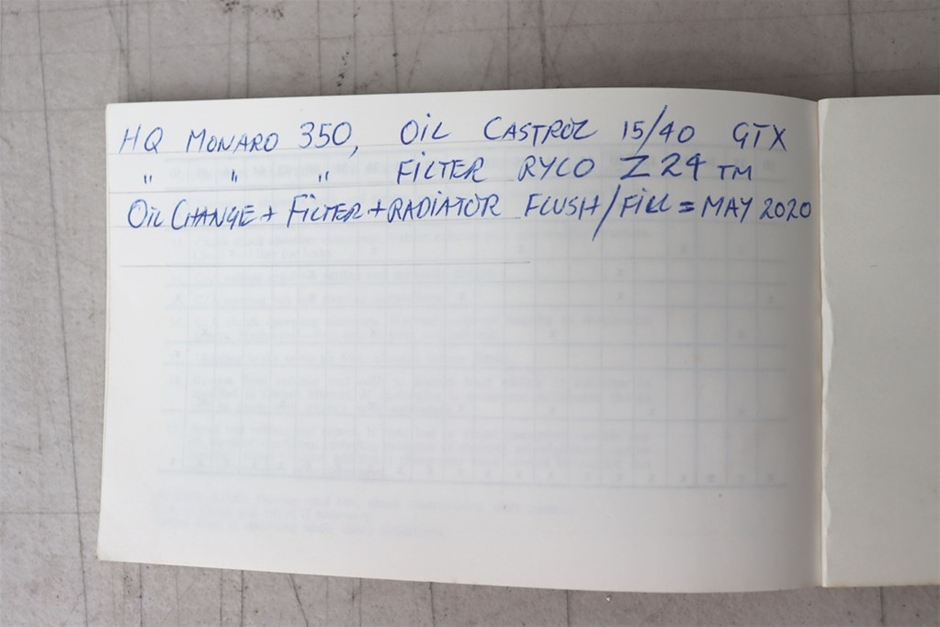 HQ MONARO 350, OIL CASTROL 15/40 GTX
" " " FILTER RYCO Z24 TM
OIL CHANGE + FILTER + RADIATOR FLUSH/FILL = MAY 2020